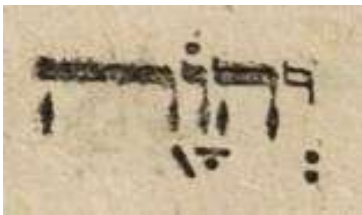 יְהֹוָ֖ה